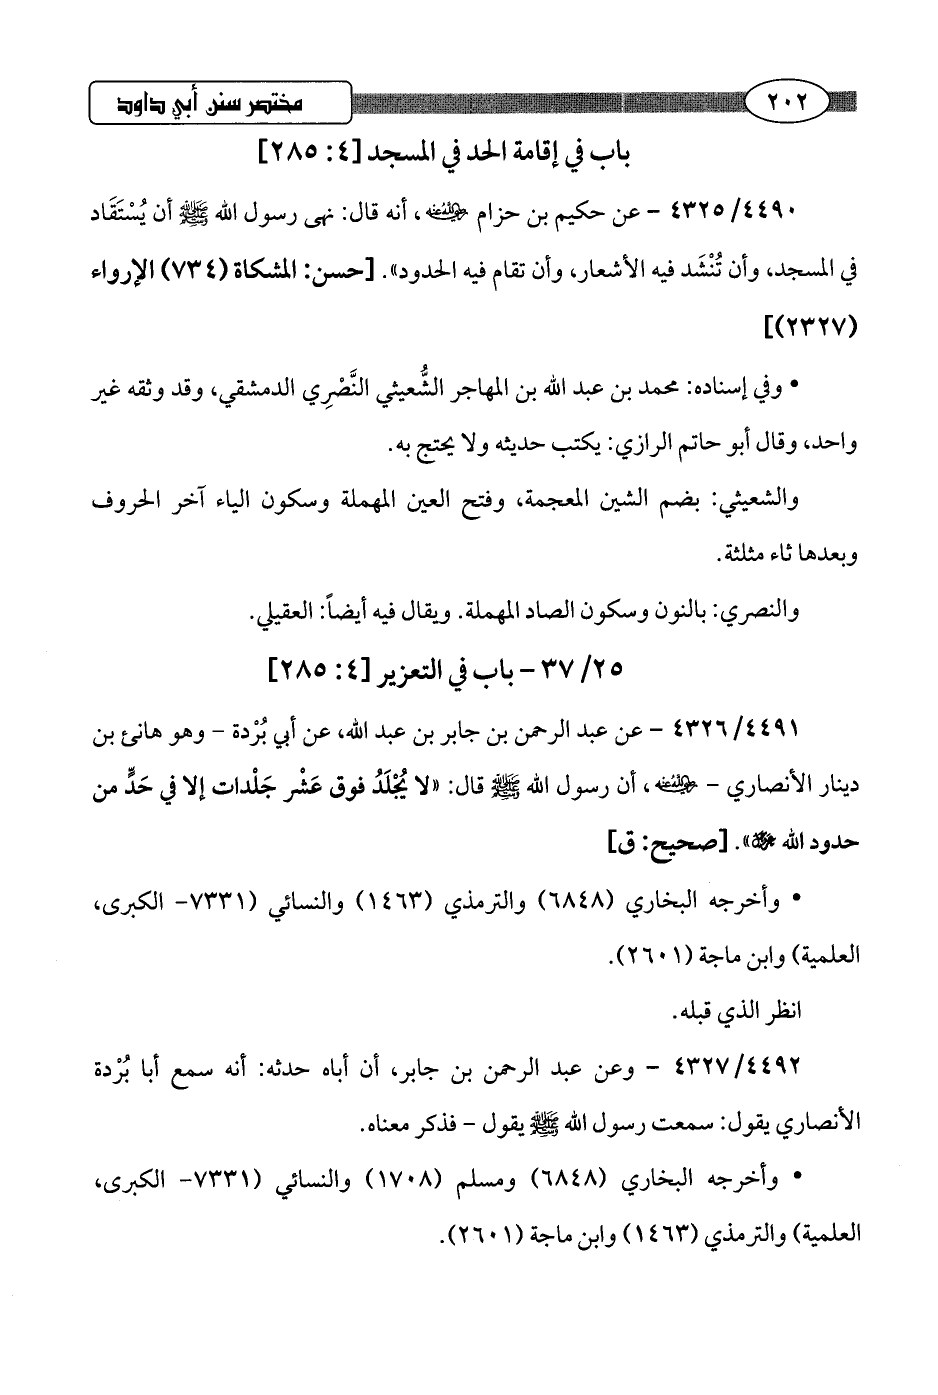 ٢٠٢ مختصر سنن أبي داود
باب في إقامة الحد في المسجد [٤: ٢٨٥]
٤٤٩٠/ ٤٣٢٥ - عن حكيم بن حزام رضي الله عنه، أنه قال: نهى رسول الله ﷺ أن يُسْتَقَاد
في المسجد، وأن تُنْشَد فيه الأشعار، وأن تقام فيه الحدود». [حسن: المشكاة (٧٣٤) الإرواء
(٢٣٢٧)]
• وفي إسناده: محمد بن عبد الله بن المهاجر الشُّعيثي النَّصْرِي الدمشقي، وقد وثقه غير
واحد، وقال أبو حاتم الرازي: يكتب حديثه ولا يحتج به.
والشعيثي: بضم الشين المعجمة، وفتح العين المهملة وسكون الياء آخر الحروف
وبعدها ثاء مثلثة.
والنصري: بالنون وسكون الصاد المهملة. ويقال فيه أيضاً: العقيلي.
٢٥/ ٣٧ - باب في التعزير [٤: ٢٨٥]
٤٤٩١/ ٤٣٢٦ - عن عبد الرحمن بن جابر بن عبد الله، عن أبي بُرْدة - وهو هانئ بن
دينار الأنصاري - رضي الله عنه، أن رسول الله ﷺ قال: «لا يُجْلَدُ فوق عَشْر جَلْدات إلا في حَدٍّ من
حدود الله عز وجل». [صحيح: ق]
• وأخرجه البخاري (٦٨٤٨) والترمذي (١٤٦٣) والنسائي (٧٣٣١- الكبرى،
العلمية) وابن ماجة (٢٦٠١).
انظر الذي قبله.
٤٤٩٢/ ٤٣٢٧ - وعن عبد الرحمن بن جابر، أن أباه حدثه: أنه سمع أبا بُرْدة
الأنصاري يقول: سمعت رسول الله ﷺ يقول - فذكر معناه.
• وأخرجه البخاري (٦٨٤٨) ومسلم (١٧٠٨) والنسائي (٧٣٣١- الكبرى،
العلمية) والترمذي (١٤٦٣) وابن ماجة (٢٦٠١).